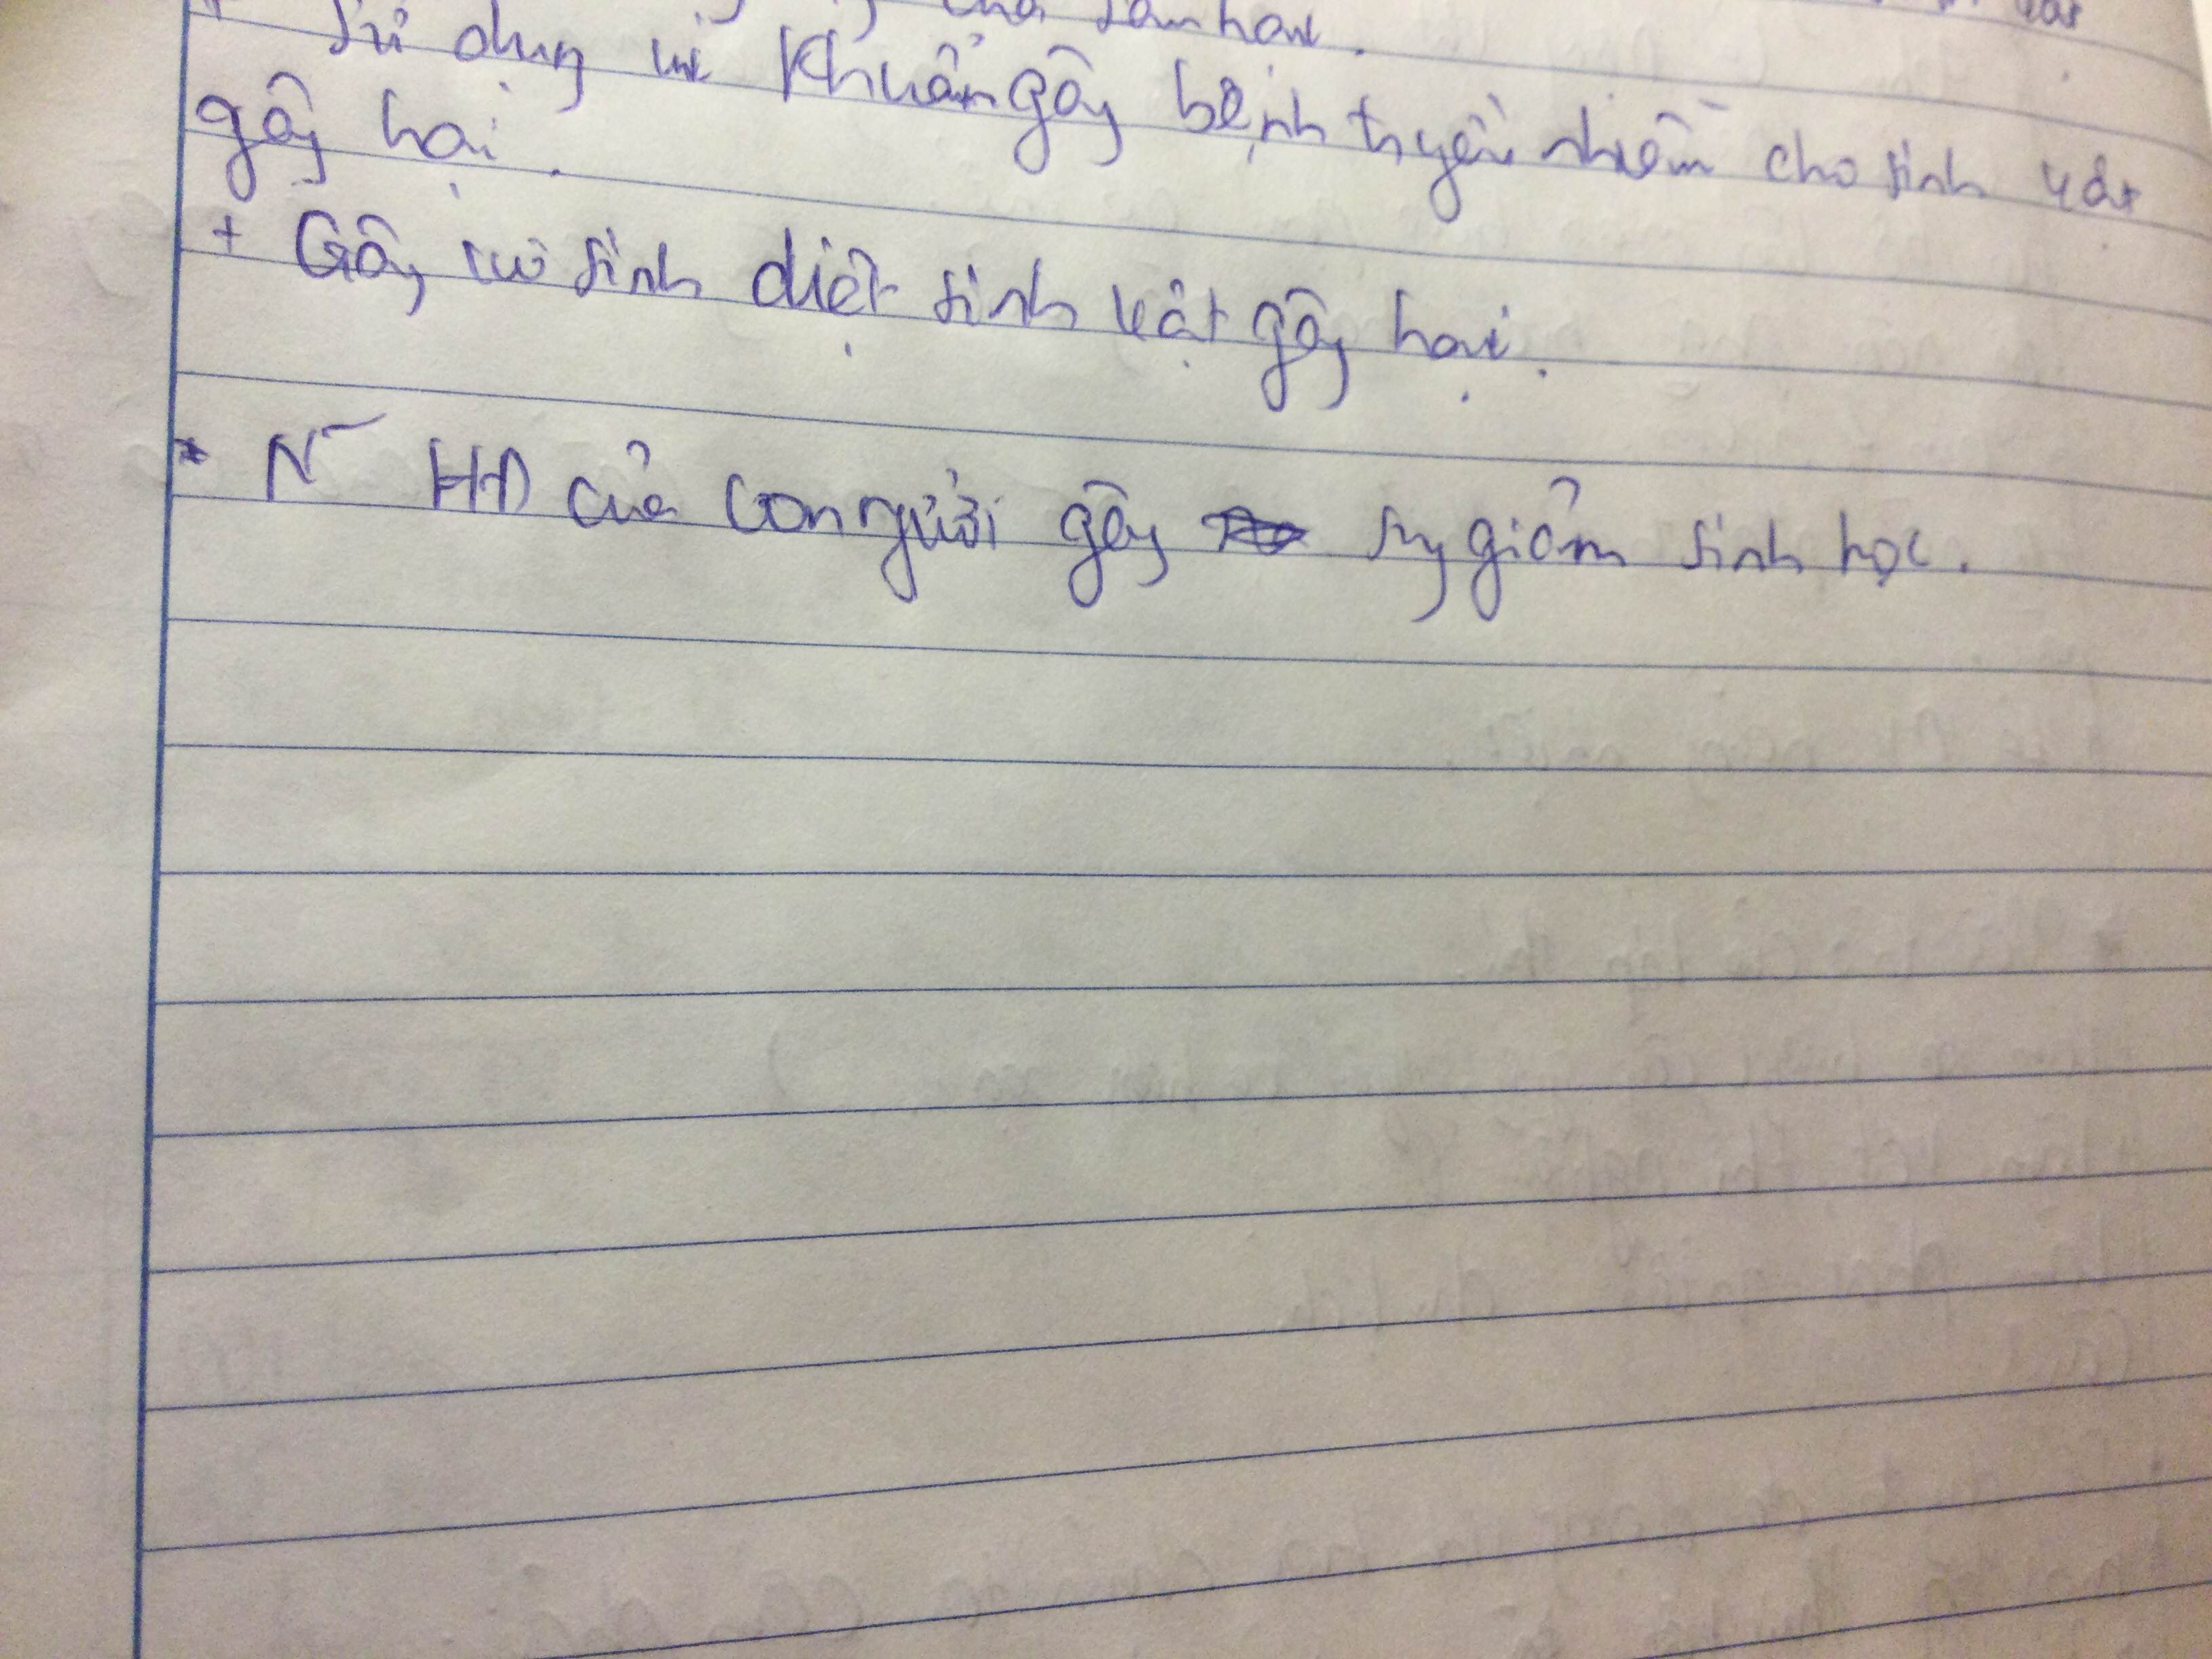 của sâu hại.
+ Sử dụng vi khuẩn gây bệnh truyền nhiễm cho sinh vật
gây hại.
+ Gây vô sinh diệt sinh vật gây hại.
* N~ HĐ của con người gây suy giảm sinh học.